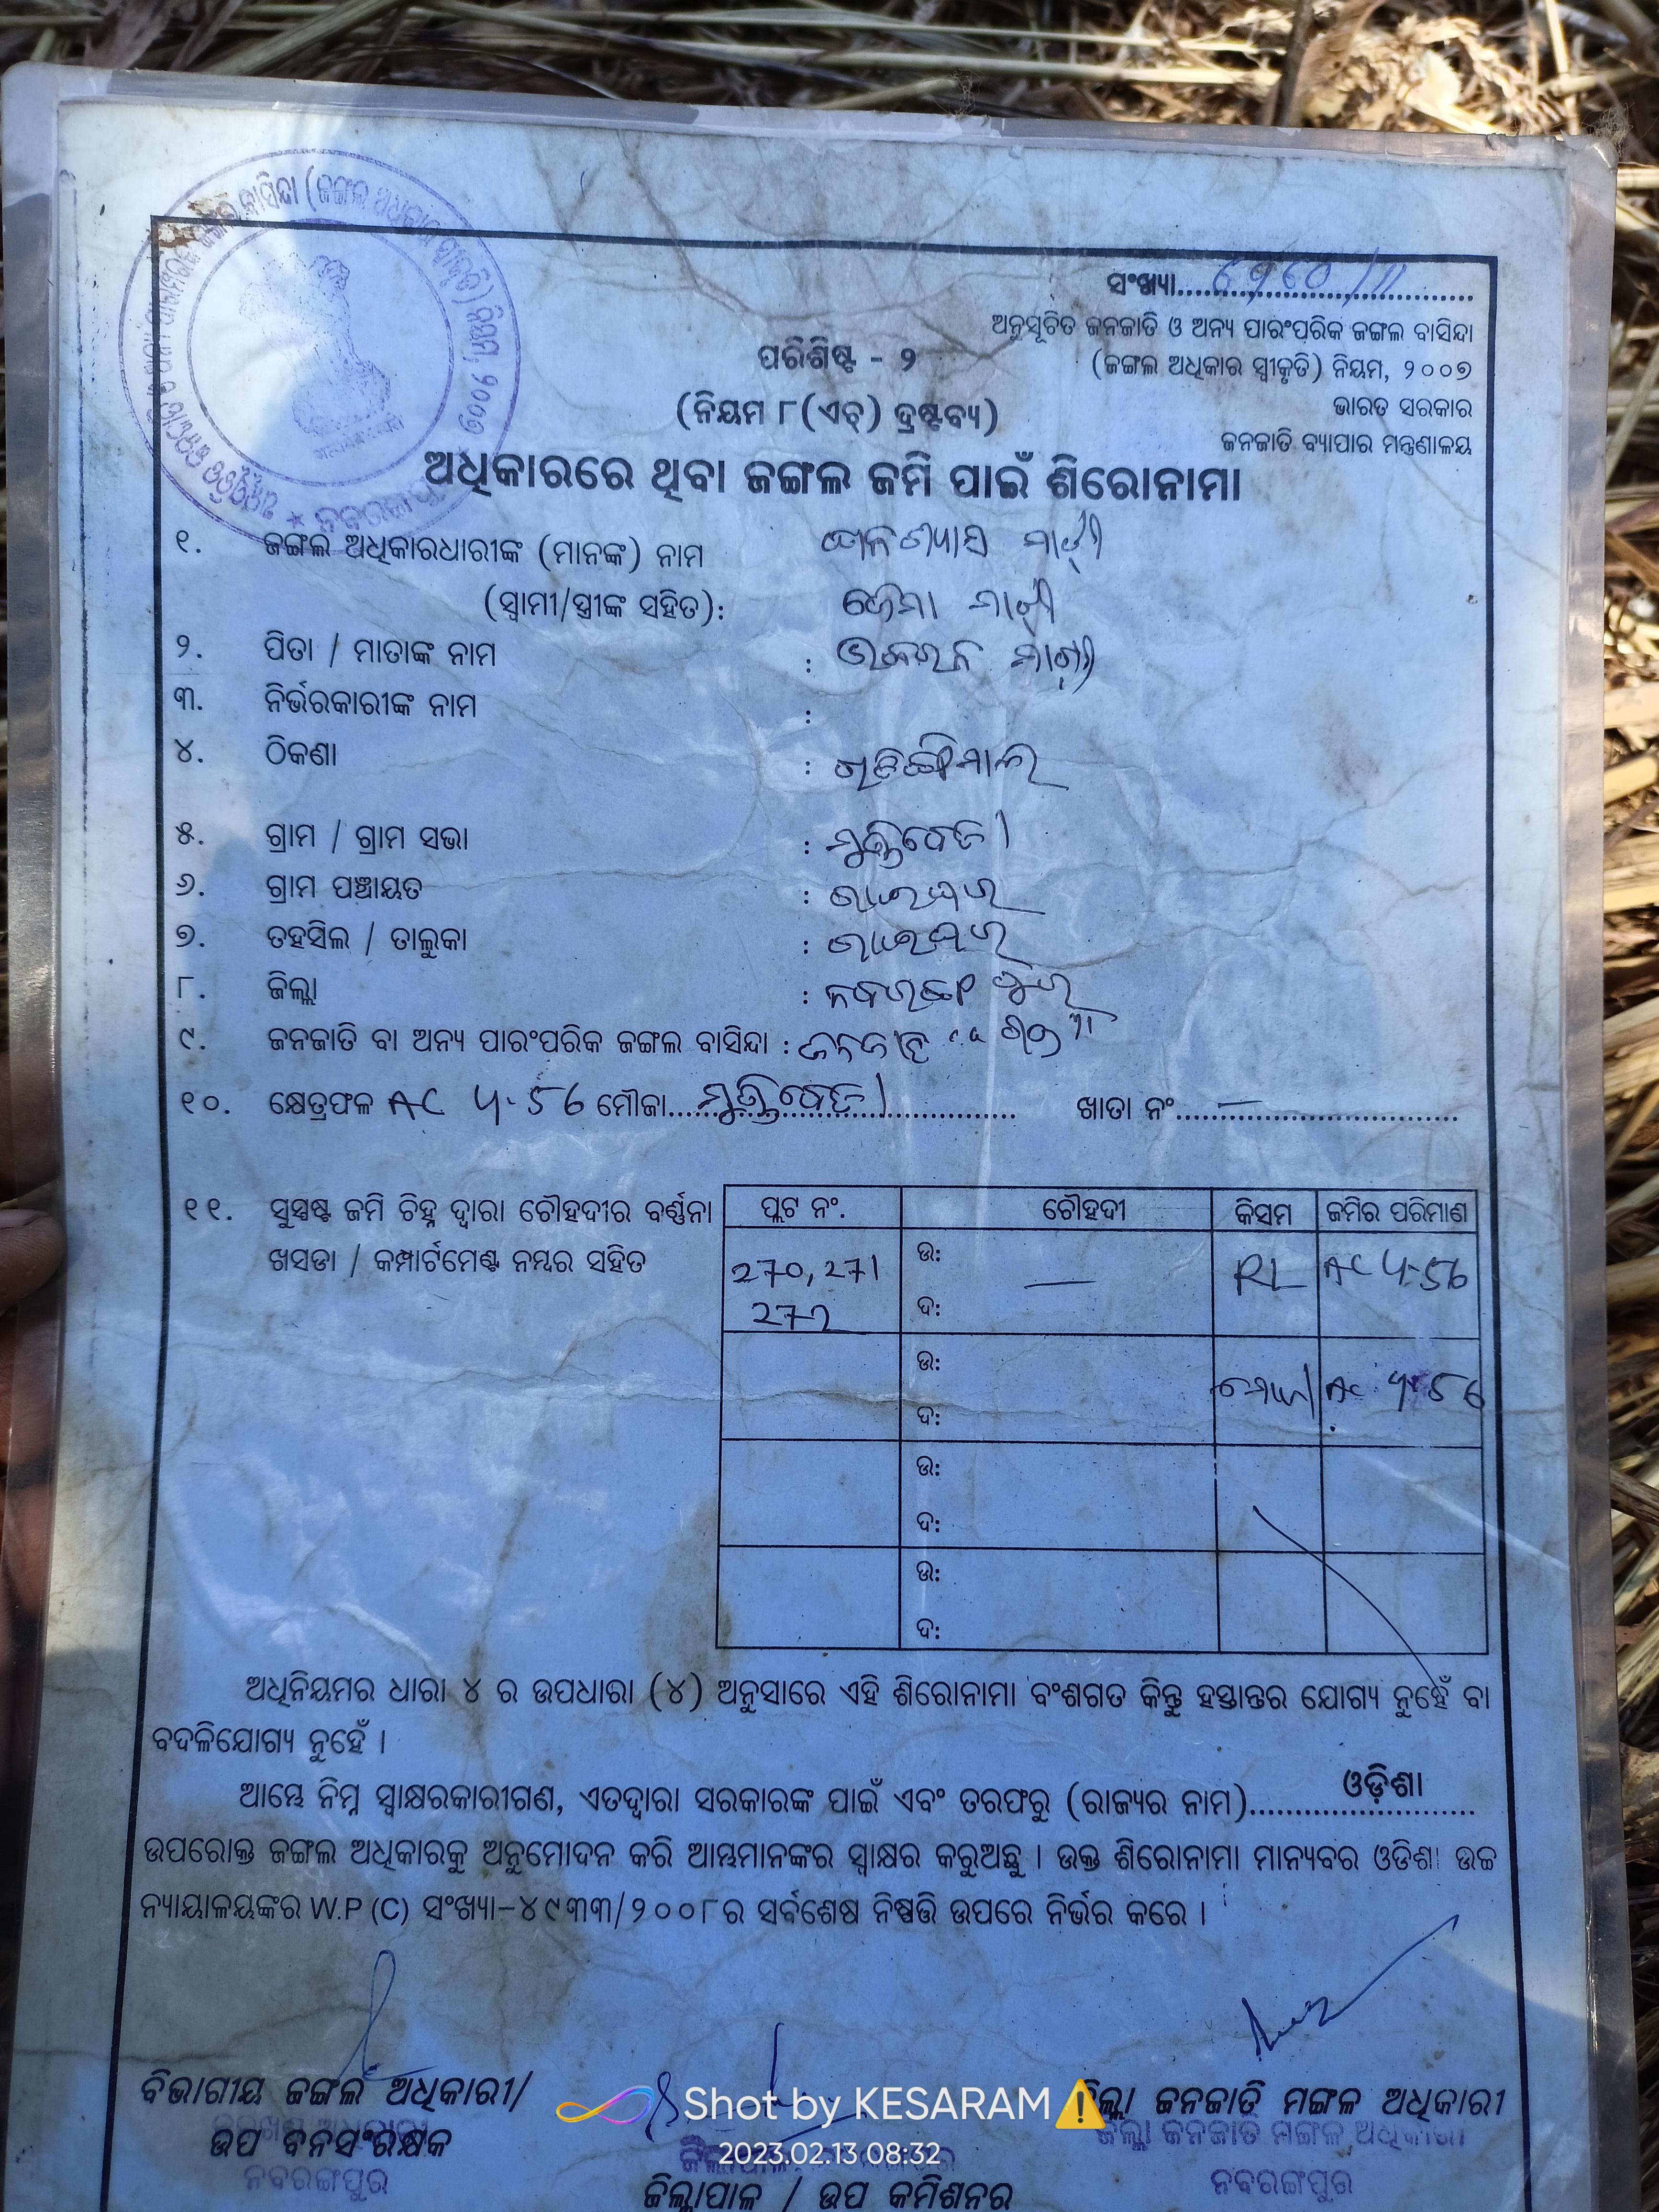 ସଂଖ୍ୟା
ଅନୁସୂଚିତ ଜନଜାତି ଓ ଅନ୍ୟ ପାରଂପରିକ ଜଙ୍ଗଲ ବାସିନ୍ଦା
(ଜଙ୍ଗଲ ଅଧିକାର ସ୍ୱୀକୃତି) ନିୟମ, ୨୦୦୭
ଭାରତ ସରକାର
ଜନଜାତି ବ୍ୟାପାର ମନ୍ତ୍ରଣାଳୟ
ପରିଶିଷ୍ଟ - ୨
(ନିୟମ ୮(ଏଚ୍) ଦ୍ରଷ୍ଟବ୍ୟ)
ଅଧିକାରରେ ଥିବା ଜଙ୍ଗଲ ଜମି ପାଇଁ ଶିରୋନାମା
୧. ଜଙ୍ଗଲ ଅଧିକାରଧାରୀଙ୍କ (ମାନଙ୍କ) ନାମ
(ସ୍ୱାମୀ/ସ୍ତ୍ରୀଙ୍କ ସହିତ):
୨. ପିତା / ମାତାଙ୍କ ନାମ :
୩. ନିର୍ଭରକାରୀଙ୍କ ନାମ :
୪. ଠିକଣା :
୫. ଗ୍ରାମ / ଗ୍ରାମ ସଭା :
୬. ଗ୍ରାମ ପଞ୍ଚାୟତ : ରାଇଘର
୭. ତହସିଲ / ତାଲୁକା : ରାଇଘର
୮. ଜିଲ୍ଲା : ନବରଙ୍ଗପୁର
୯. ଜନଜାତି ବା ଅନ୍ୟ ପାରଂପରିକ ଜଙ୍ଗଲ ବାସିନ୍ଦା : ଜନଜାତି
୧୦. କ୍ଷେତ୍ରଫଳ AC 4.56 ମୌଜା ଖାତା ନଂ —
୧୧. ସୁସ୍ପଷ୍ଟ ଜମି ଚିହ୍ନ ଦ୍ୱାରା ଚୌହଦୀର ବର୍ଣ୍ଣନା
ଖସଡା / କମ୍ପାର୍ଟମେଣ୍ଟ ନମ୍ବର ସହିତ
ପ୍ଲଟ ନଂ. ଚୌହଦୀ କିସମ ଜମିର ପରିମାଣ
270, 271 ଉ: — RL AC 4.56
272 ଦ:
ଉ: AC 4.56
ଦ:
ଉ:
ଦ:
ଉ:
ଦ:
ଅଧିନିୟମର ଧାରା ୪ ର ଉପଧାରା (୪) ଅନୁସାରେ ଏହି ଶିରୋନାମା ବଂଶଗତ କିନ୍ତୁ ହସ୍ତାନ୍ତର ଯୋଗ୍ୟ ନୁହେଁ ବା
ବଦଳିଯୋଗ୍ୟ ନୁହେଁ ।
ଆମ୍ଭେ ନିମ୍ନ ସ୍ୱାକ୍ଷରକାରୀଗଣ, ଏତଦ୍ୱାରା ସରକାରଙ୍କ ପାଇଁ ଏବଂ ତରଫରୁ (ରାଜ୍ୟର ନାମ) ଓଡ଼ିଶା
ଉପରୋକ୍ତ ଜଙ୍ଗଲ ଅଧିକାରକୁ ଅନୁମୋଦନ କରି ଆମ୍ଭମାନଙ୍କର ସ୍ୱାକ୍ଷର କରୁଅଛୁ । ଉକ୍ତ ଶିରୋନାମା ମାନ୍ୟବର ଓଡିଶା ଉଚ୍ଚ
ନ୍ୟାୟାଳୟଙ୍କର W.P (C) ସଂଖ୍ୟା-୪୯୩୩/୨୦୦୮ର ସର୍ବଶେଷ ନିଷ୍ପତ୍ତି ଉପରେ ନିର୍ଭର କରେ ।
ବିଭାଗୀୟ ଜଙ୍ଗଲ ଅଧିକାରୀ/
ଉପ ବନସଂରକ୍ଷକ
ନବରଙ୍ଗପୁର
ଜିଲ୍ଲାପାଳ / ଉପ କମିଶନର
ଜିଲ୍ଲା ଜନଜାତି ମଙ୍ଗଳ ଅଧିକାରୀ
ଜିଲ୍ଲା ଜନଜାତି ମଙ୍ଗଳ ଅଧିକାରୀ
ନବରଙ୍ଗପୁର
Shot by KESARAM⚠️
2023.02.13 08:32